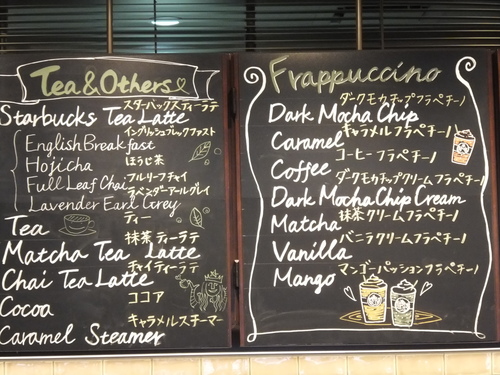 Tea & Others
スターバックスティーラテ
Starbucks Tea Latte
イングリッシュブレックファスト
English Breakfast
ほうじ茶
Hojicha
フルリーフチャイ
Full Leaf Chai
ラベンダーアールグレイ
Lavender Earl Grey
ティー
Tea
抹茶ティーラテ
Matcha Tea Latte
チャイティーラテ
Chai Tea Latte
ココア
Cocoa
キャラメルスチーマー
Caramel Steamer
Frappuccino
ダークモカチップフラペチーノ
Dark Mocha Chip
キャラメルフラペチーノ
Caramel
コーヒーフラペチーノ
Coffee
ダークモカチップクリームフラペチーノ
Dark Mocha Chip Cream
抹茶クリームフラペチーノ
Matcha
バニラクリームフラペチーノ
Vanilla
マンゴーパッションフラペチーノ
Mango